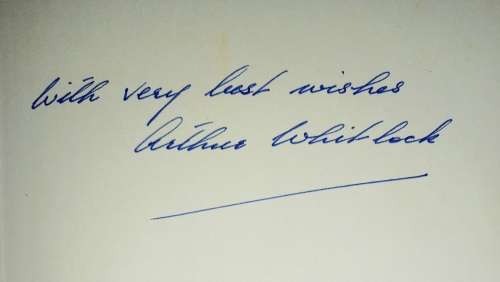 With very best wishes
Arthur Whitlock